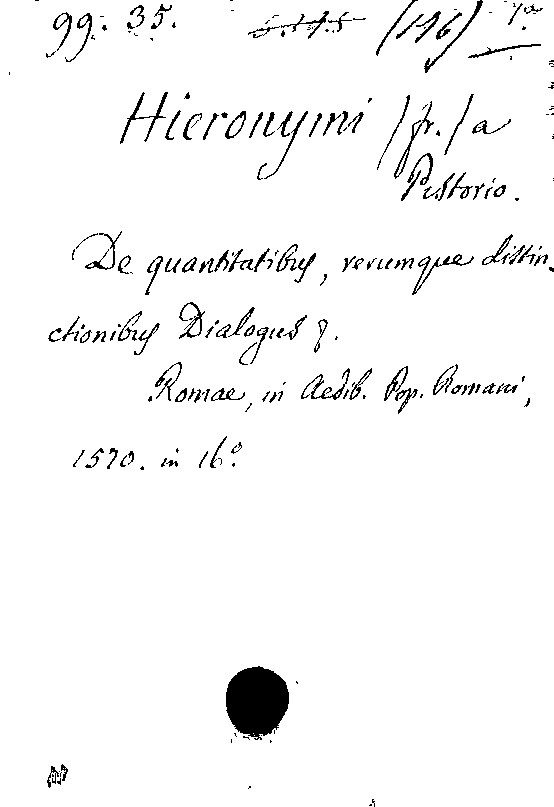 99. 35. (116)
Hieronymi (fr.) a
Pistorio.
De quantitatibus, rerumque distin-
ctionibus Dialogus &.
Romae, in Aedib. Pop. Romani,
1570. in 16º.